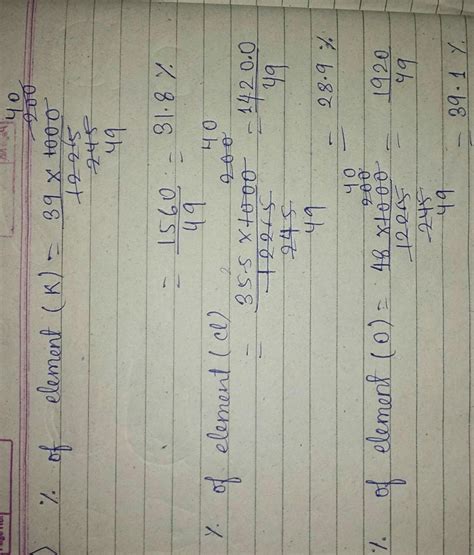 % of element (K) = 39 × 1000 / 1225
200
40
245
49
= 1560 / 49 = 31.8 %
% of element (Cl)
= 35.5 × 1000 / 1225 = 1420.0 / 49
200
40
245
49
= 28.9 %
% of element (O) = 48 × 1000 / 1225 = 1920 / 49
200
40
245
49
= 39.1 %